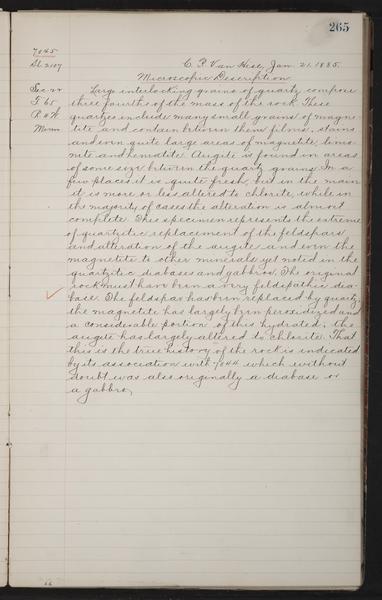 265
7045
Sl. 2107
C. R. Van Hise, Jan. 21. 1885.
Microscopic Description
Sec 22
T 65
R 8 W
Large interlocking grains of quartz compose
three fourths of the mass of the rock. These
quartzes include many small grains of magne-
tite and contain between them films, stains
and even quite large areas of magnetite, limo-
nite and hematite. Augite is found in areas
of some size between the quartz grains. In a
few places it is quite fresh, but in the main
it is more or less altered to chlorite, while in
the majority of cases the alteration is almost
complete. This specimen represents the extreme
of quartzitic replacement of the feldspars
and alteration of the augite and even the
magnetite to other minerals yet noted in the
quartzitic diabases and gabbros. The original
rock must have been a very feldspathic dia-
base. The feldspar has been replaced by quartz,
the magnetite has largely been peroxidized and
a considerable portion of this hydrated; the
augite has largely altered to chlorite. That
this is the true history of the rock is indicated
by its association with 7044 which without
doubt was also originally a diabase or
a gabbro,